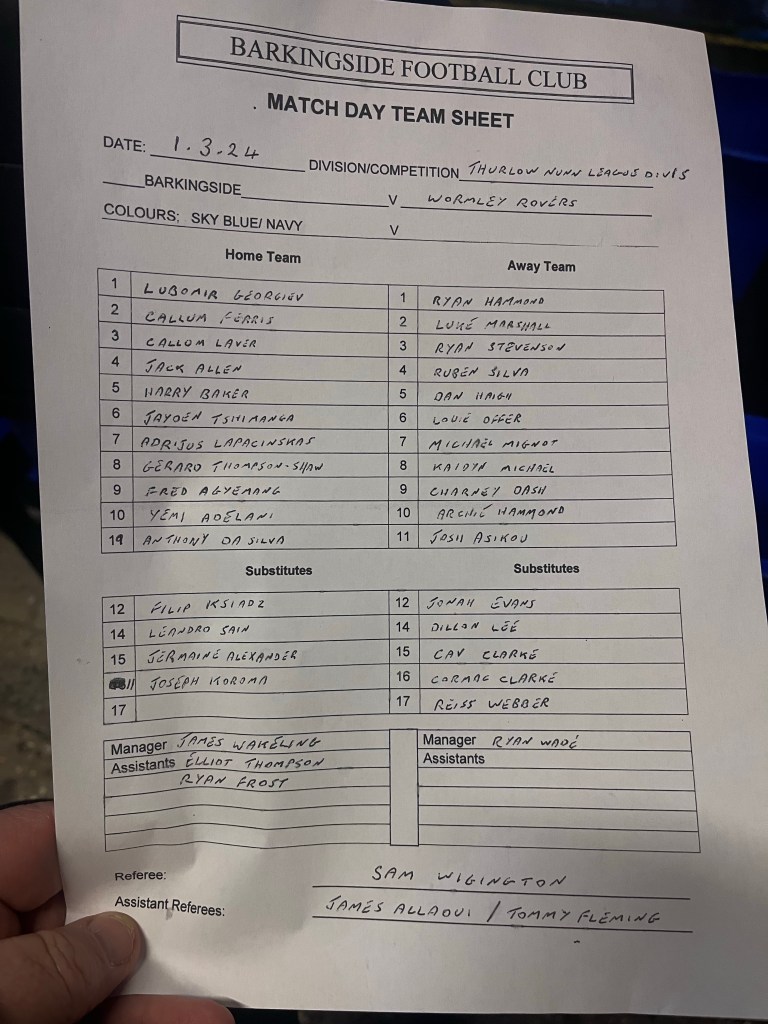 BARKINGSIDE FOOTBALL CLUB
. MATCH DAY TEAM SHEET
DATE: 1.3.24 DIVISION/COMPETITION THURLOW NUNN LEAGUE DIV1S
BARKINGSIDE V WORMLEY ROVERS
COLOURS; SKY BLUE/ NAVY V
Home Team Away Team
1 LUBOMIR GEORGIEV 1 RYAN HAMMOND
2 CALLUM FERRIS 2 LUKE MARSHALL
3 CALLOM LAVER 3 RYAN STEVENSON
4 JACK ALLEN 4 RUBEN SILVA
5 HARRY BAKER 5 DAN HAIGH
6 JAYDEN TSHIMANGA 6 LOUIE OFFER
7 ADRIJUS LAPACINSKAS 7 MICHAEL MIGNOT
8 GERARD THOMPSON-SHAW 8 KAIDYN MICHAEL
9 FRED AGYEMANG 9 CHARNEY DASH
10 YEMI ADELANI 10 ARCHIE HAMMOND
19 ANTHONY DA SILVA 11 JOSH ASIKOU
Substitutes Substitutes
12 FILIP KSIADZ 12 JONAH EVANS
14 LEANDRO SAIN 14 DILLON LEE
15 JERMAINE ALEXANDER 15 CAV CLARKE
11 JOSEPH KOROMA 16 CORMAC CLARKE
17 17 REISS WEBBER
Manager JAMES WAKELING Manager RYAN WADE
Assistants ELLIOT THOMPSON Assistants
RYAN FROST
Referee: SAM WIGINGTON
Assistant Referees: JAMES ALLAOUI / TOMMY FLEMING